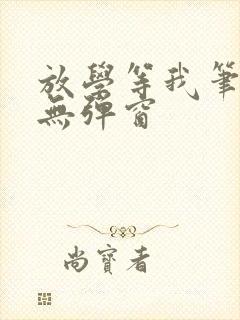 放學等我筆
無彈窗
尚寶者